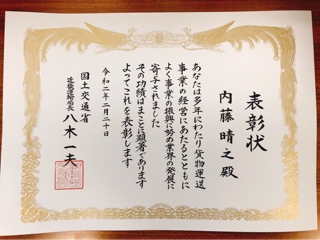 表彰状
内藤晴之殿
あなたは多年にわたり貨物運送
事業の経営にあたるとともに
よく事業の振興に努め業界の発展に
寄与されました
その功績はまことに顕著であります
よってこれを表彰します
令和二年二月二十日
国土交通省
近畿運輸局長 八木一夫